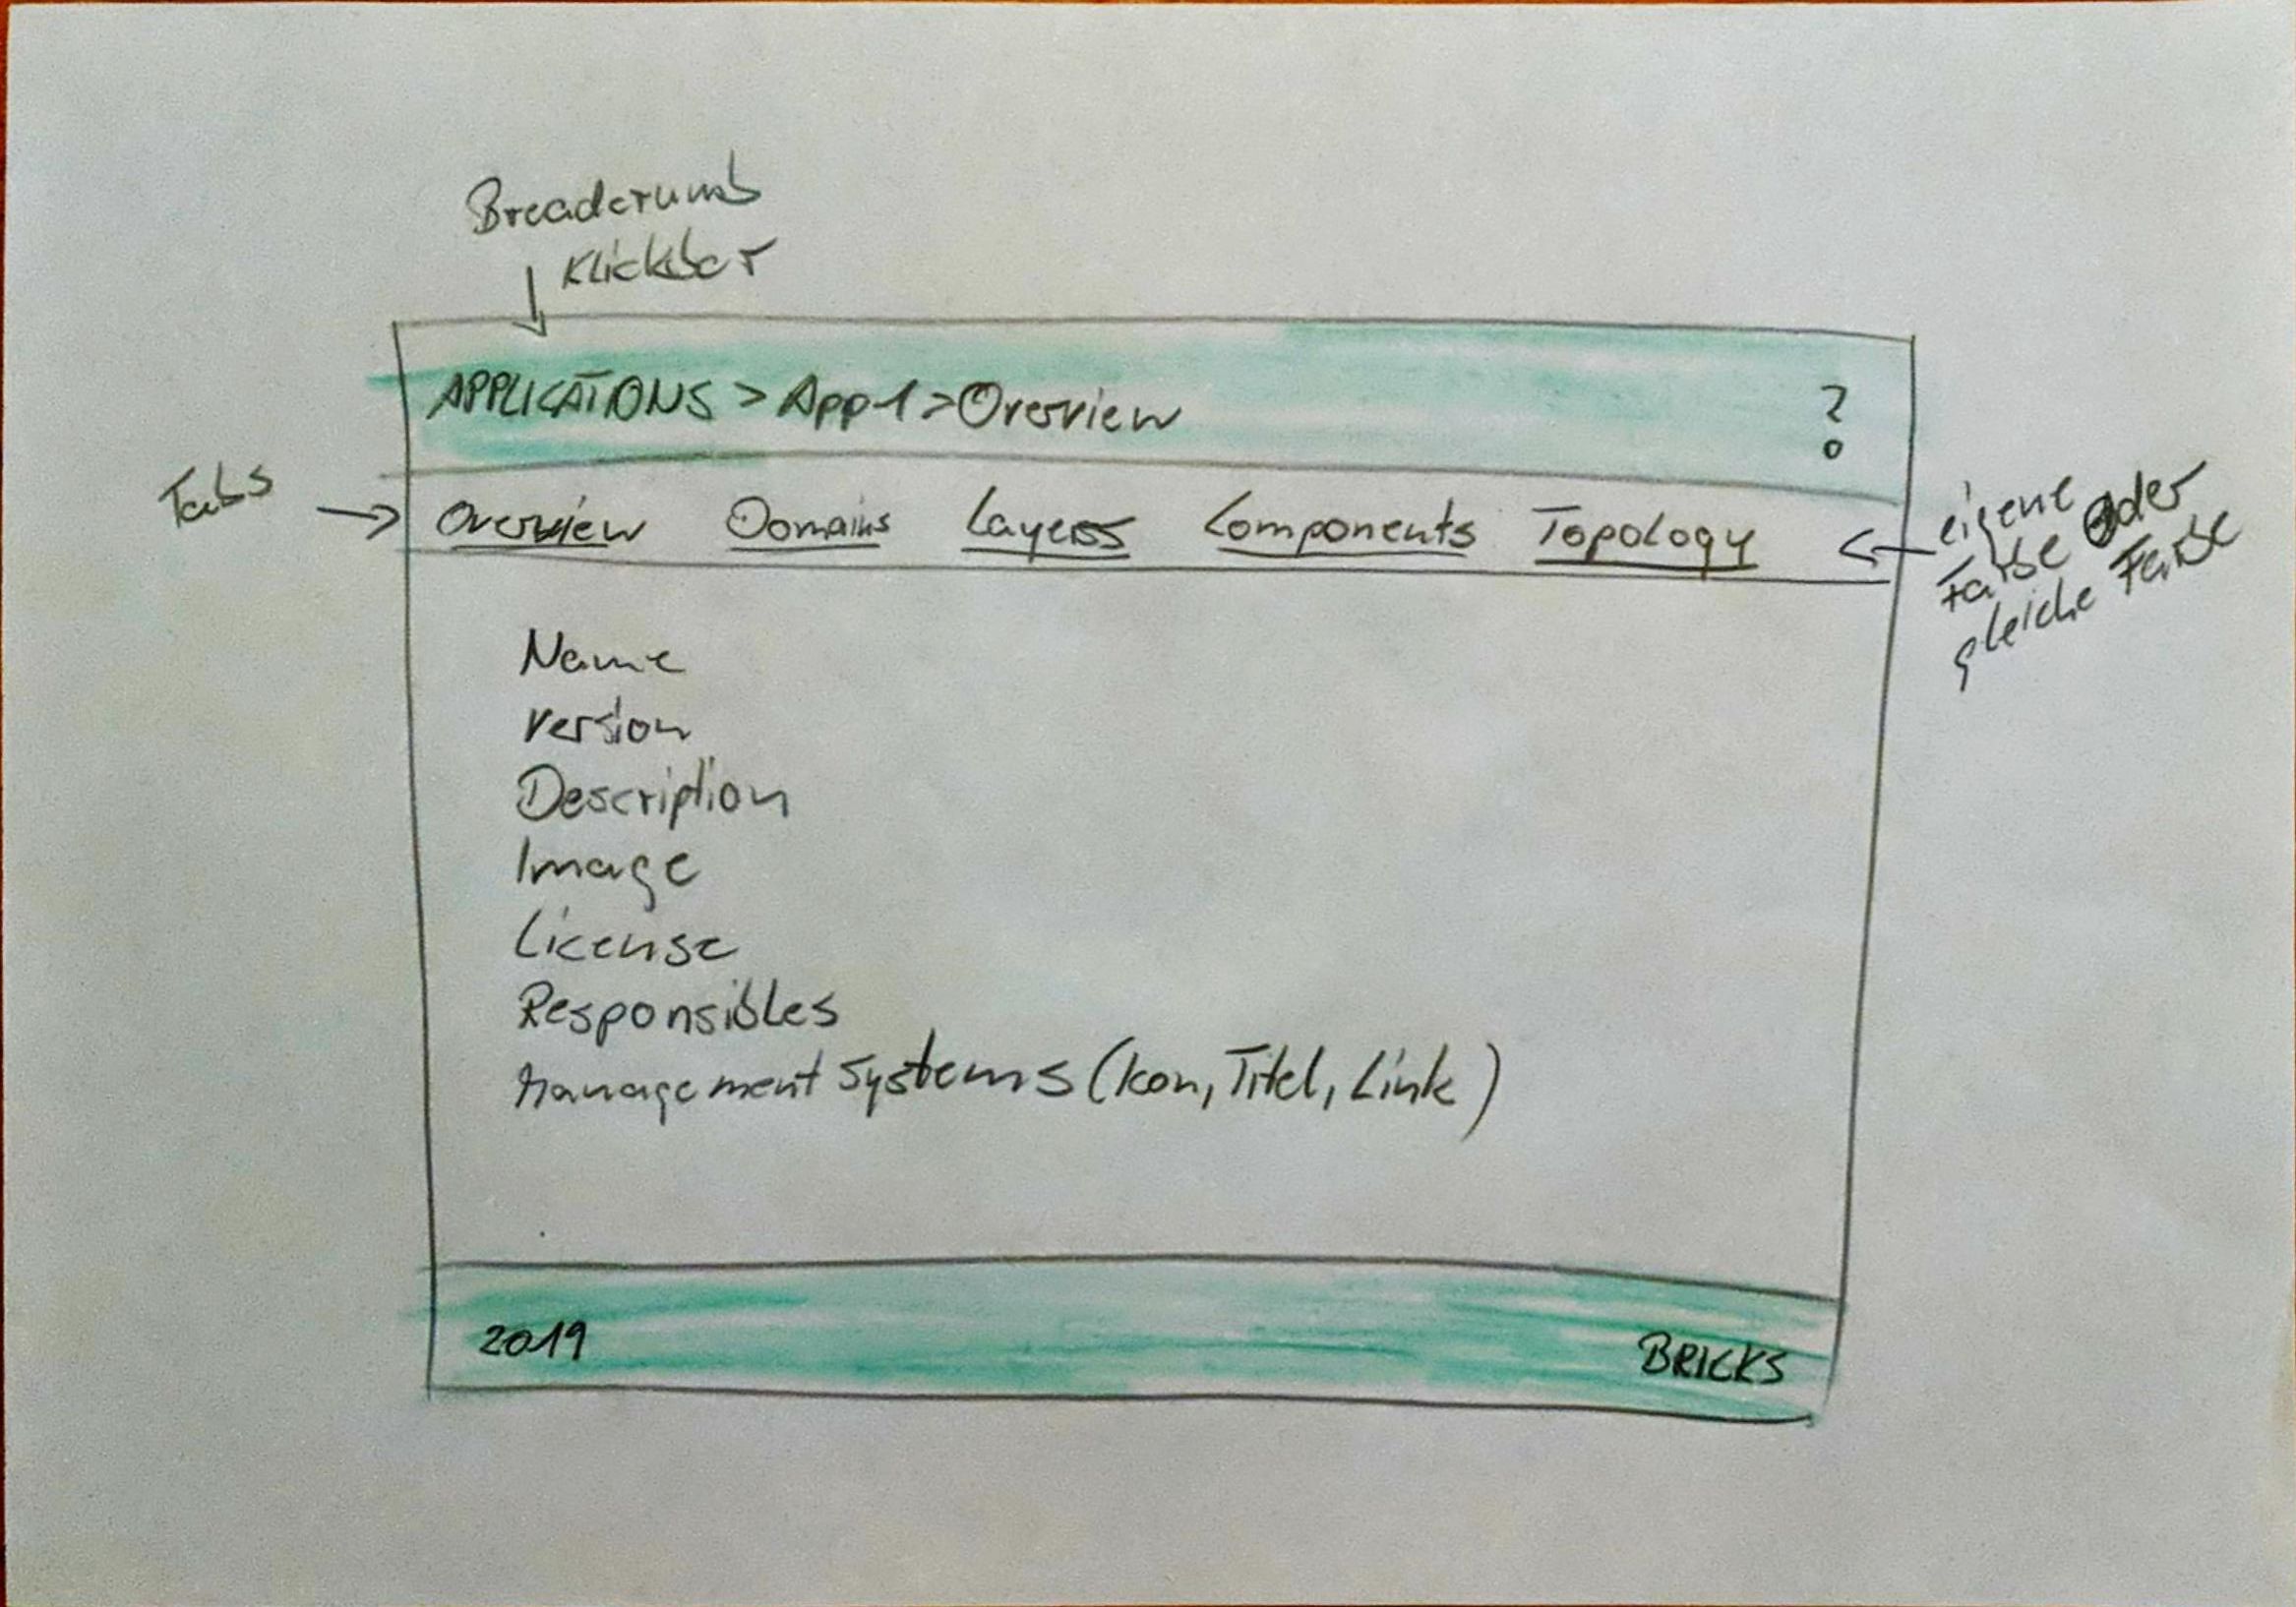 Breadcrumb
Klickbar
APPLICATIONS > App1 > Overview ?
Tabs
Overview Domains Layers Components Topology
eigene
Farbe oder
gleiche Farbe
Name
Version
Description
Image
License
Responsibles
Management Systems (Icon, Titel, Link)
2019 BRICKS